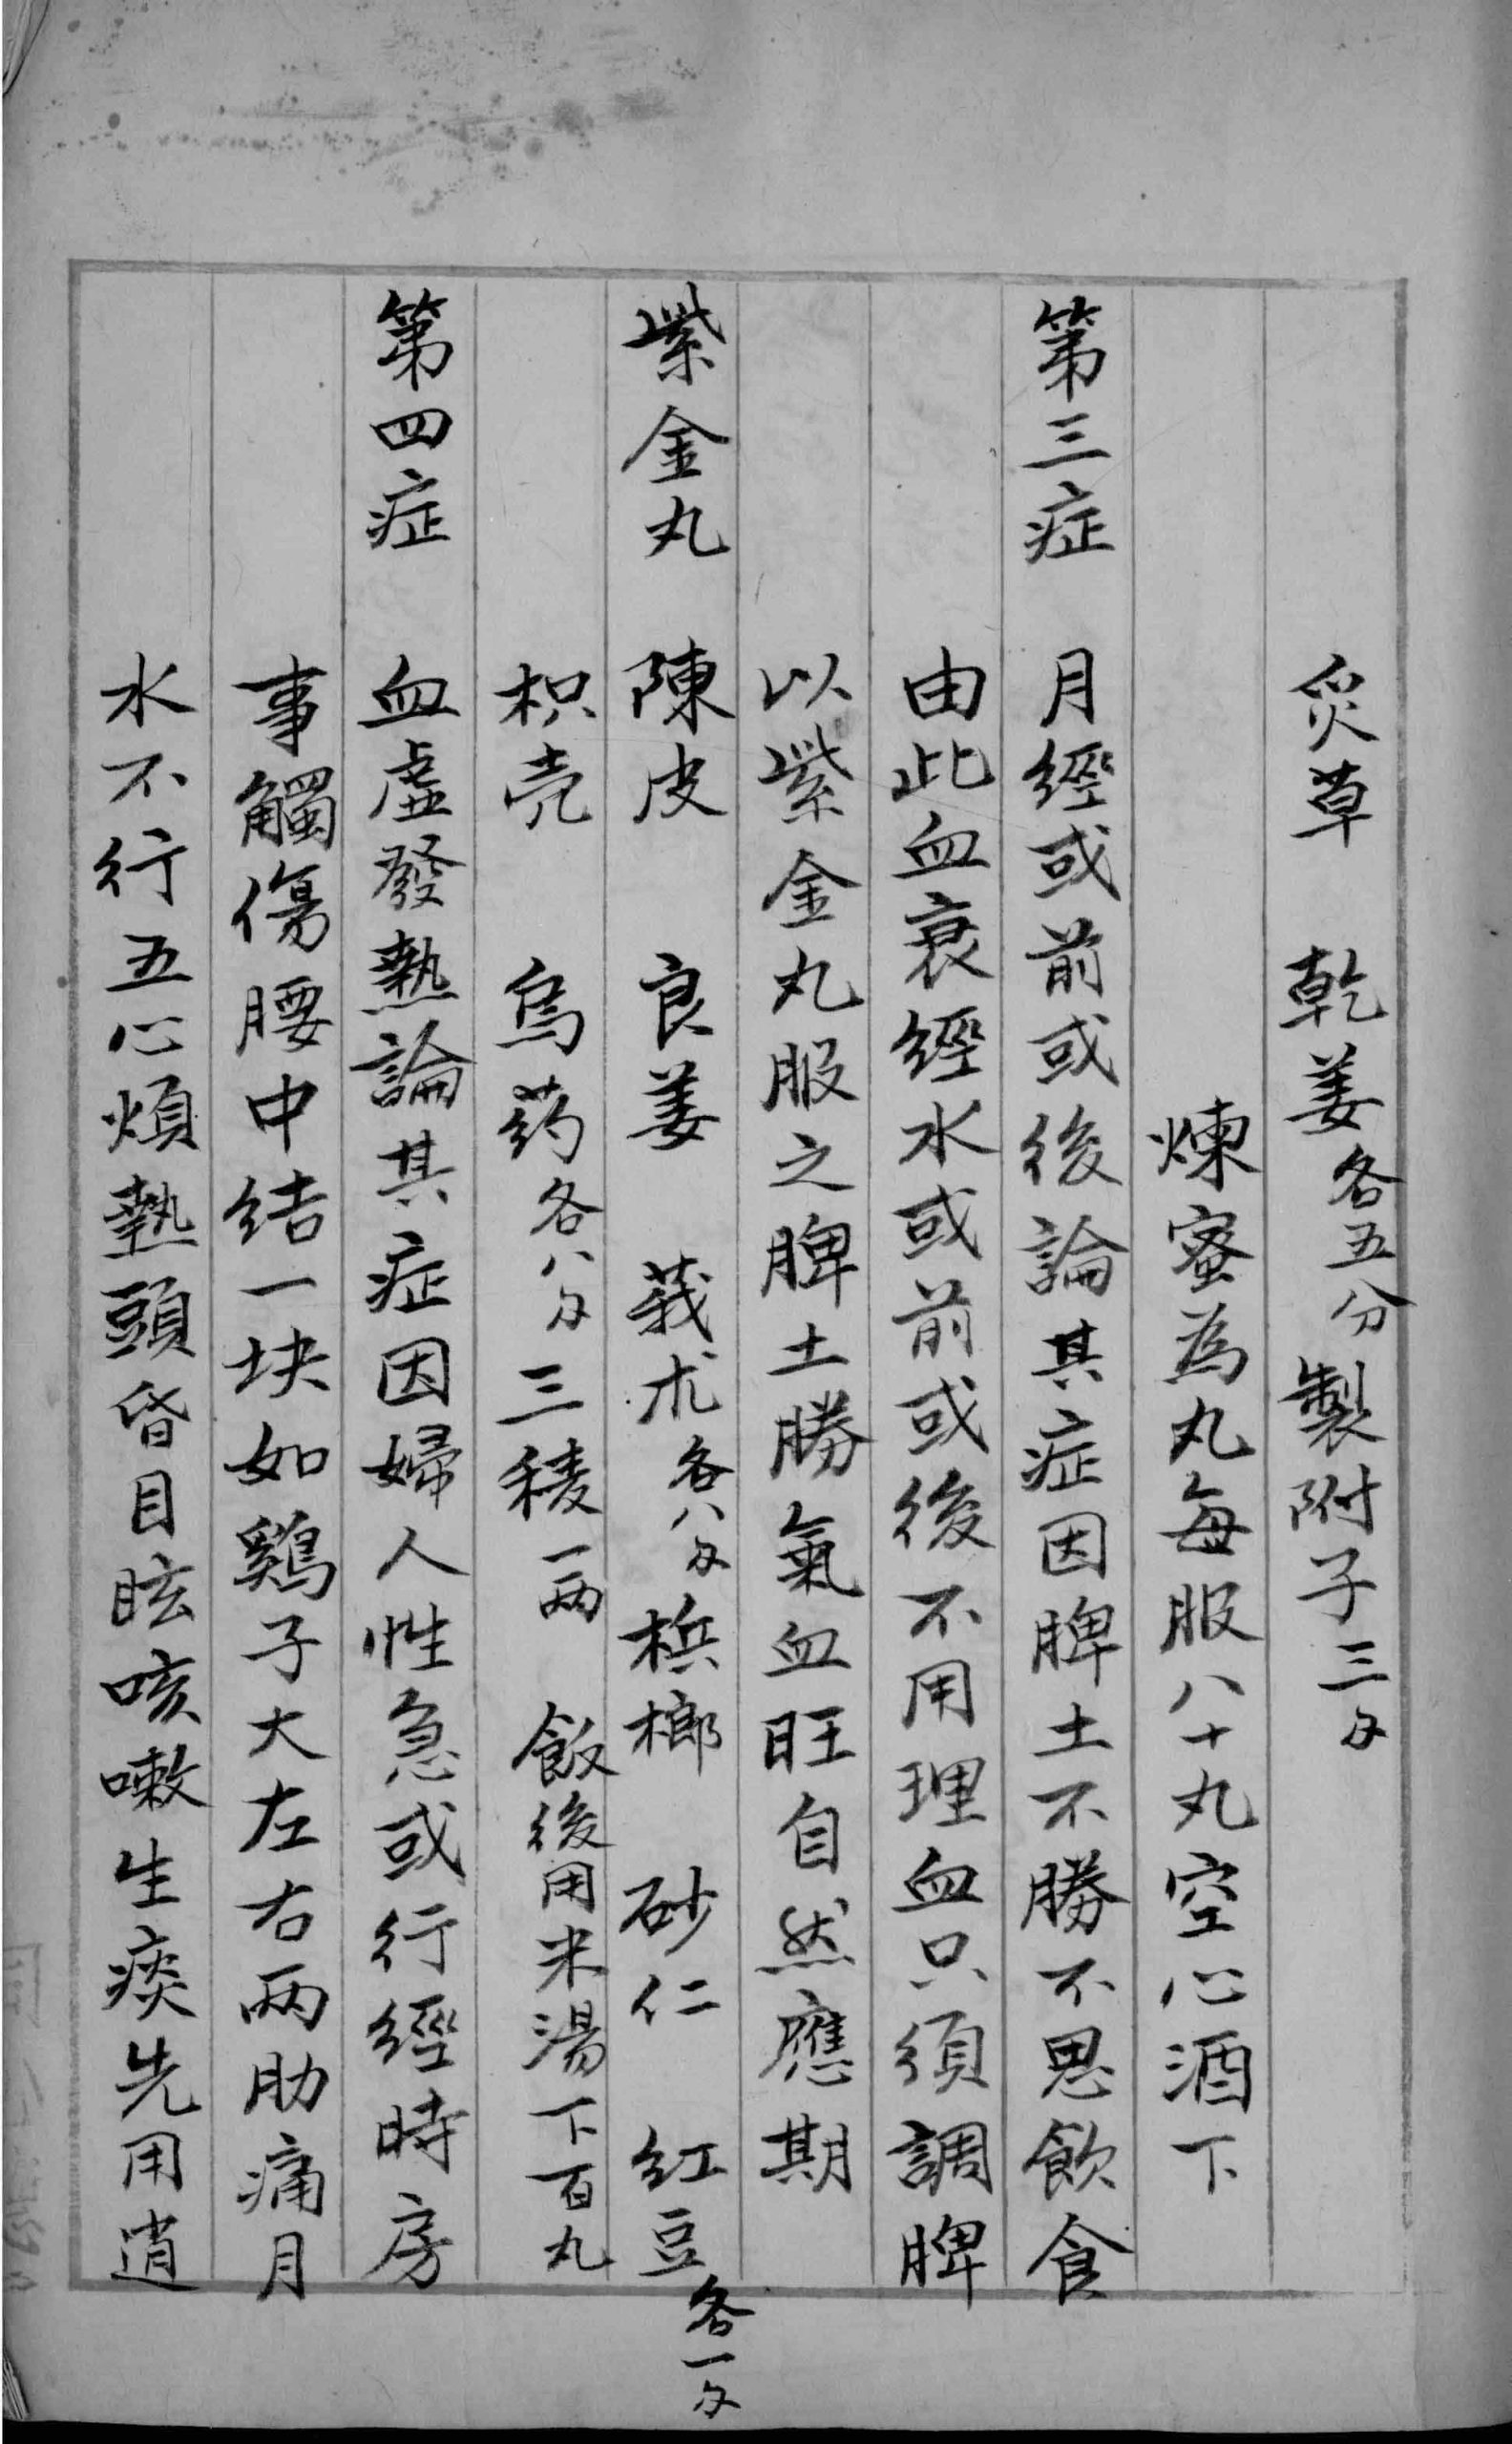 炙草　乾姜各五分製附子三錢
煉蜜為丸每服八十丸空心酒下
第三症　月經或前或後論其症因脾土不勝不思飲食
由此血衰經水或前或後不用理血只須調脾
以紫金丸服之脾土勝氣血旺自然應期
紫金丸　陳皮　良姜　莪朮各八錢梹榔　砂仁　紅豆各一錢
枳壳　烏药各八錢三稜一兩　飯後用米湯下百丸
第四症　血虛發熱論其症因婦人性急或行經時房
事觸傷腰中结一块如鷄子大左右兩肋痛月
水不行五心煩熱頭昏目眩咳嗽生痰先用逍